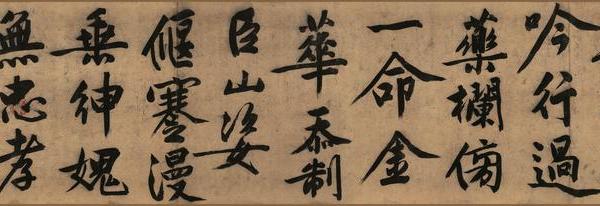 吟行過
藥欄傍
一命金
華忝制
臣山姿
偃蹇漫
垂紳愧
無忠孝